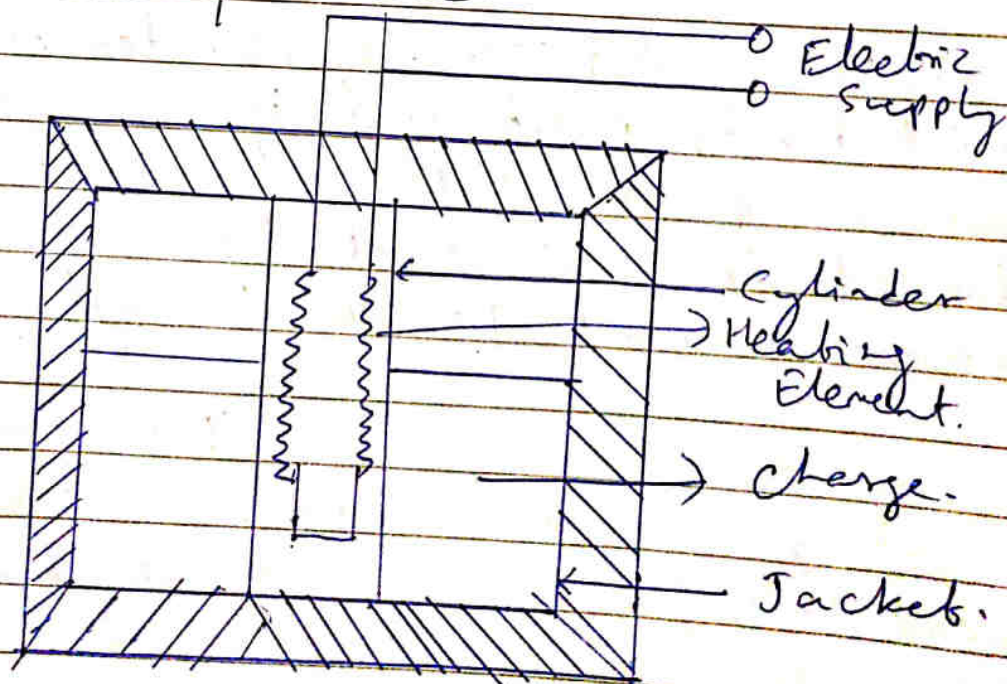 Electric
Supply
Cylinder
Heating
Element.
Charge.
Jacket.